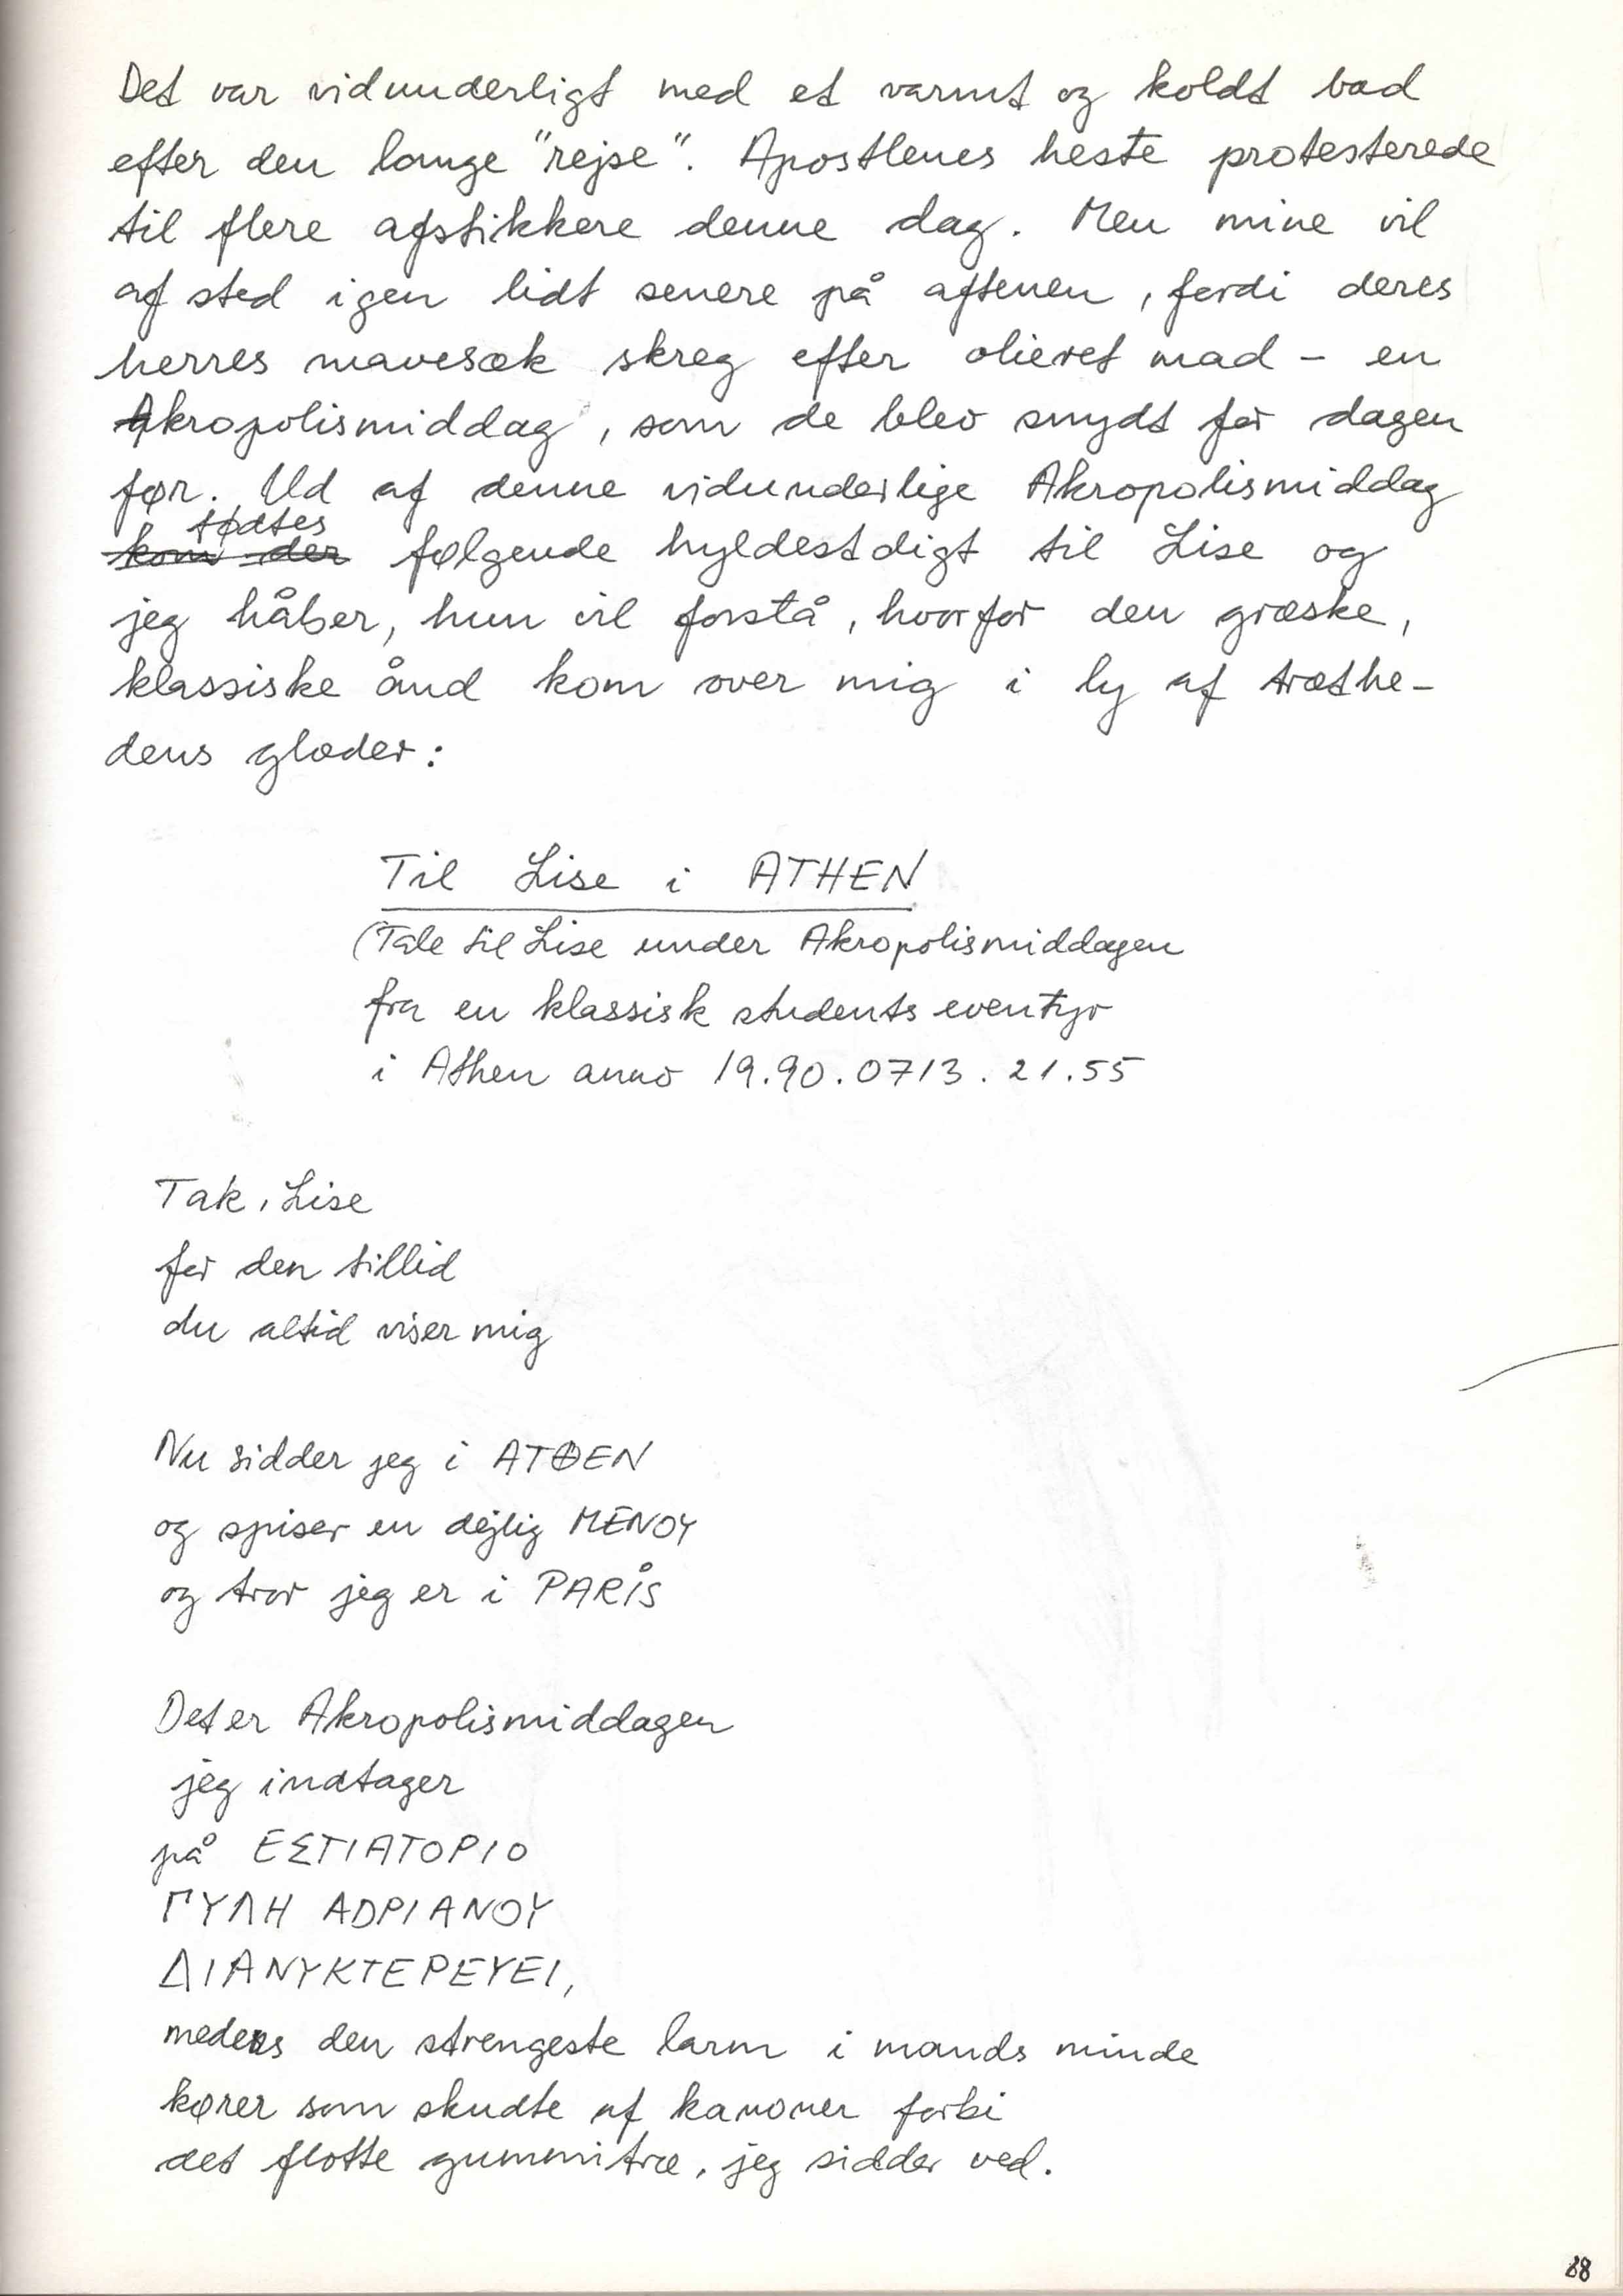 Det var vidunderligt med et varmt og koldt bad
efter den lange "rejse". Apostlenes heste protesterede
til flere afstikkere denne dag. Men mine vil
af sted igen lidt senere på aftenen, fordi deres
herres mavesæk skreg efter olieret mad - en
Akropolismiddag, som de blev snydt for dagen
før. Ud af denne vidunderlige Akropolismiddag
fødtes
kom der følgende hyldestdigt til Lise og
jeg håber, hun vil forstå, hvorfor den græske,
klassiske ånd kom over mig i ly af træthe-
dens glæder:
Til Lise i ATHEN
(Tale til Lise under Akropolismiddagen
fra en klassisk students eventyr
i Athen anno 19.90.0713.21.55
Tak, Lise
for den tillid
du altid viser mig
Nu sidder jeg i ATΘEN
og spiser en dejlig MENOY
og tror jeg er i PARIS
Det er Akropolismiddagen
jeg indtager
på ΕΣΤΙΑΤΟΡΙΟ
ΠΥΛΗ ΑDΡΙΑΝΟΥ
ΔΙΑΝΥΚΤΕΡΕΥΕΙ,
medens den strengeste larm i mands minde
kører som skudte af kanoner forbi
det flotte gummitræ, jeg sidder ved.
88